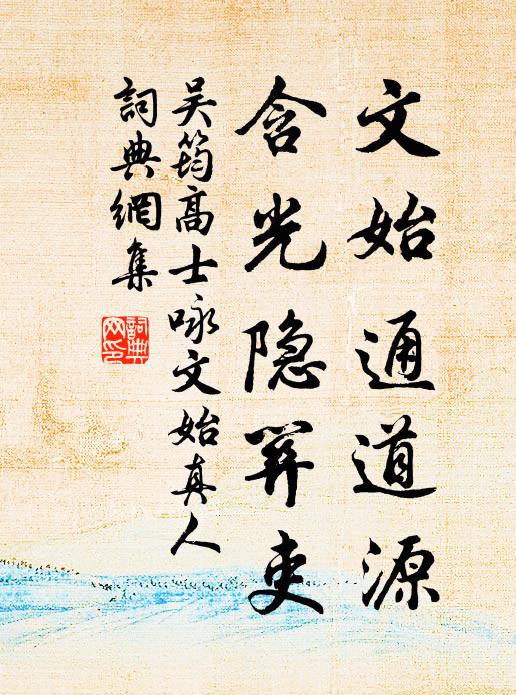 文始通道源
含光隐關吏
吴筠高士咏文始真人
詞典網集
詞典网印